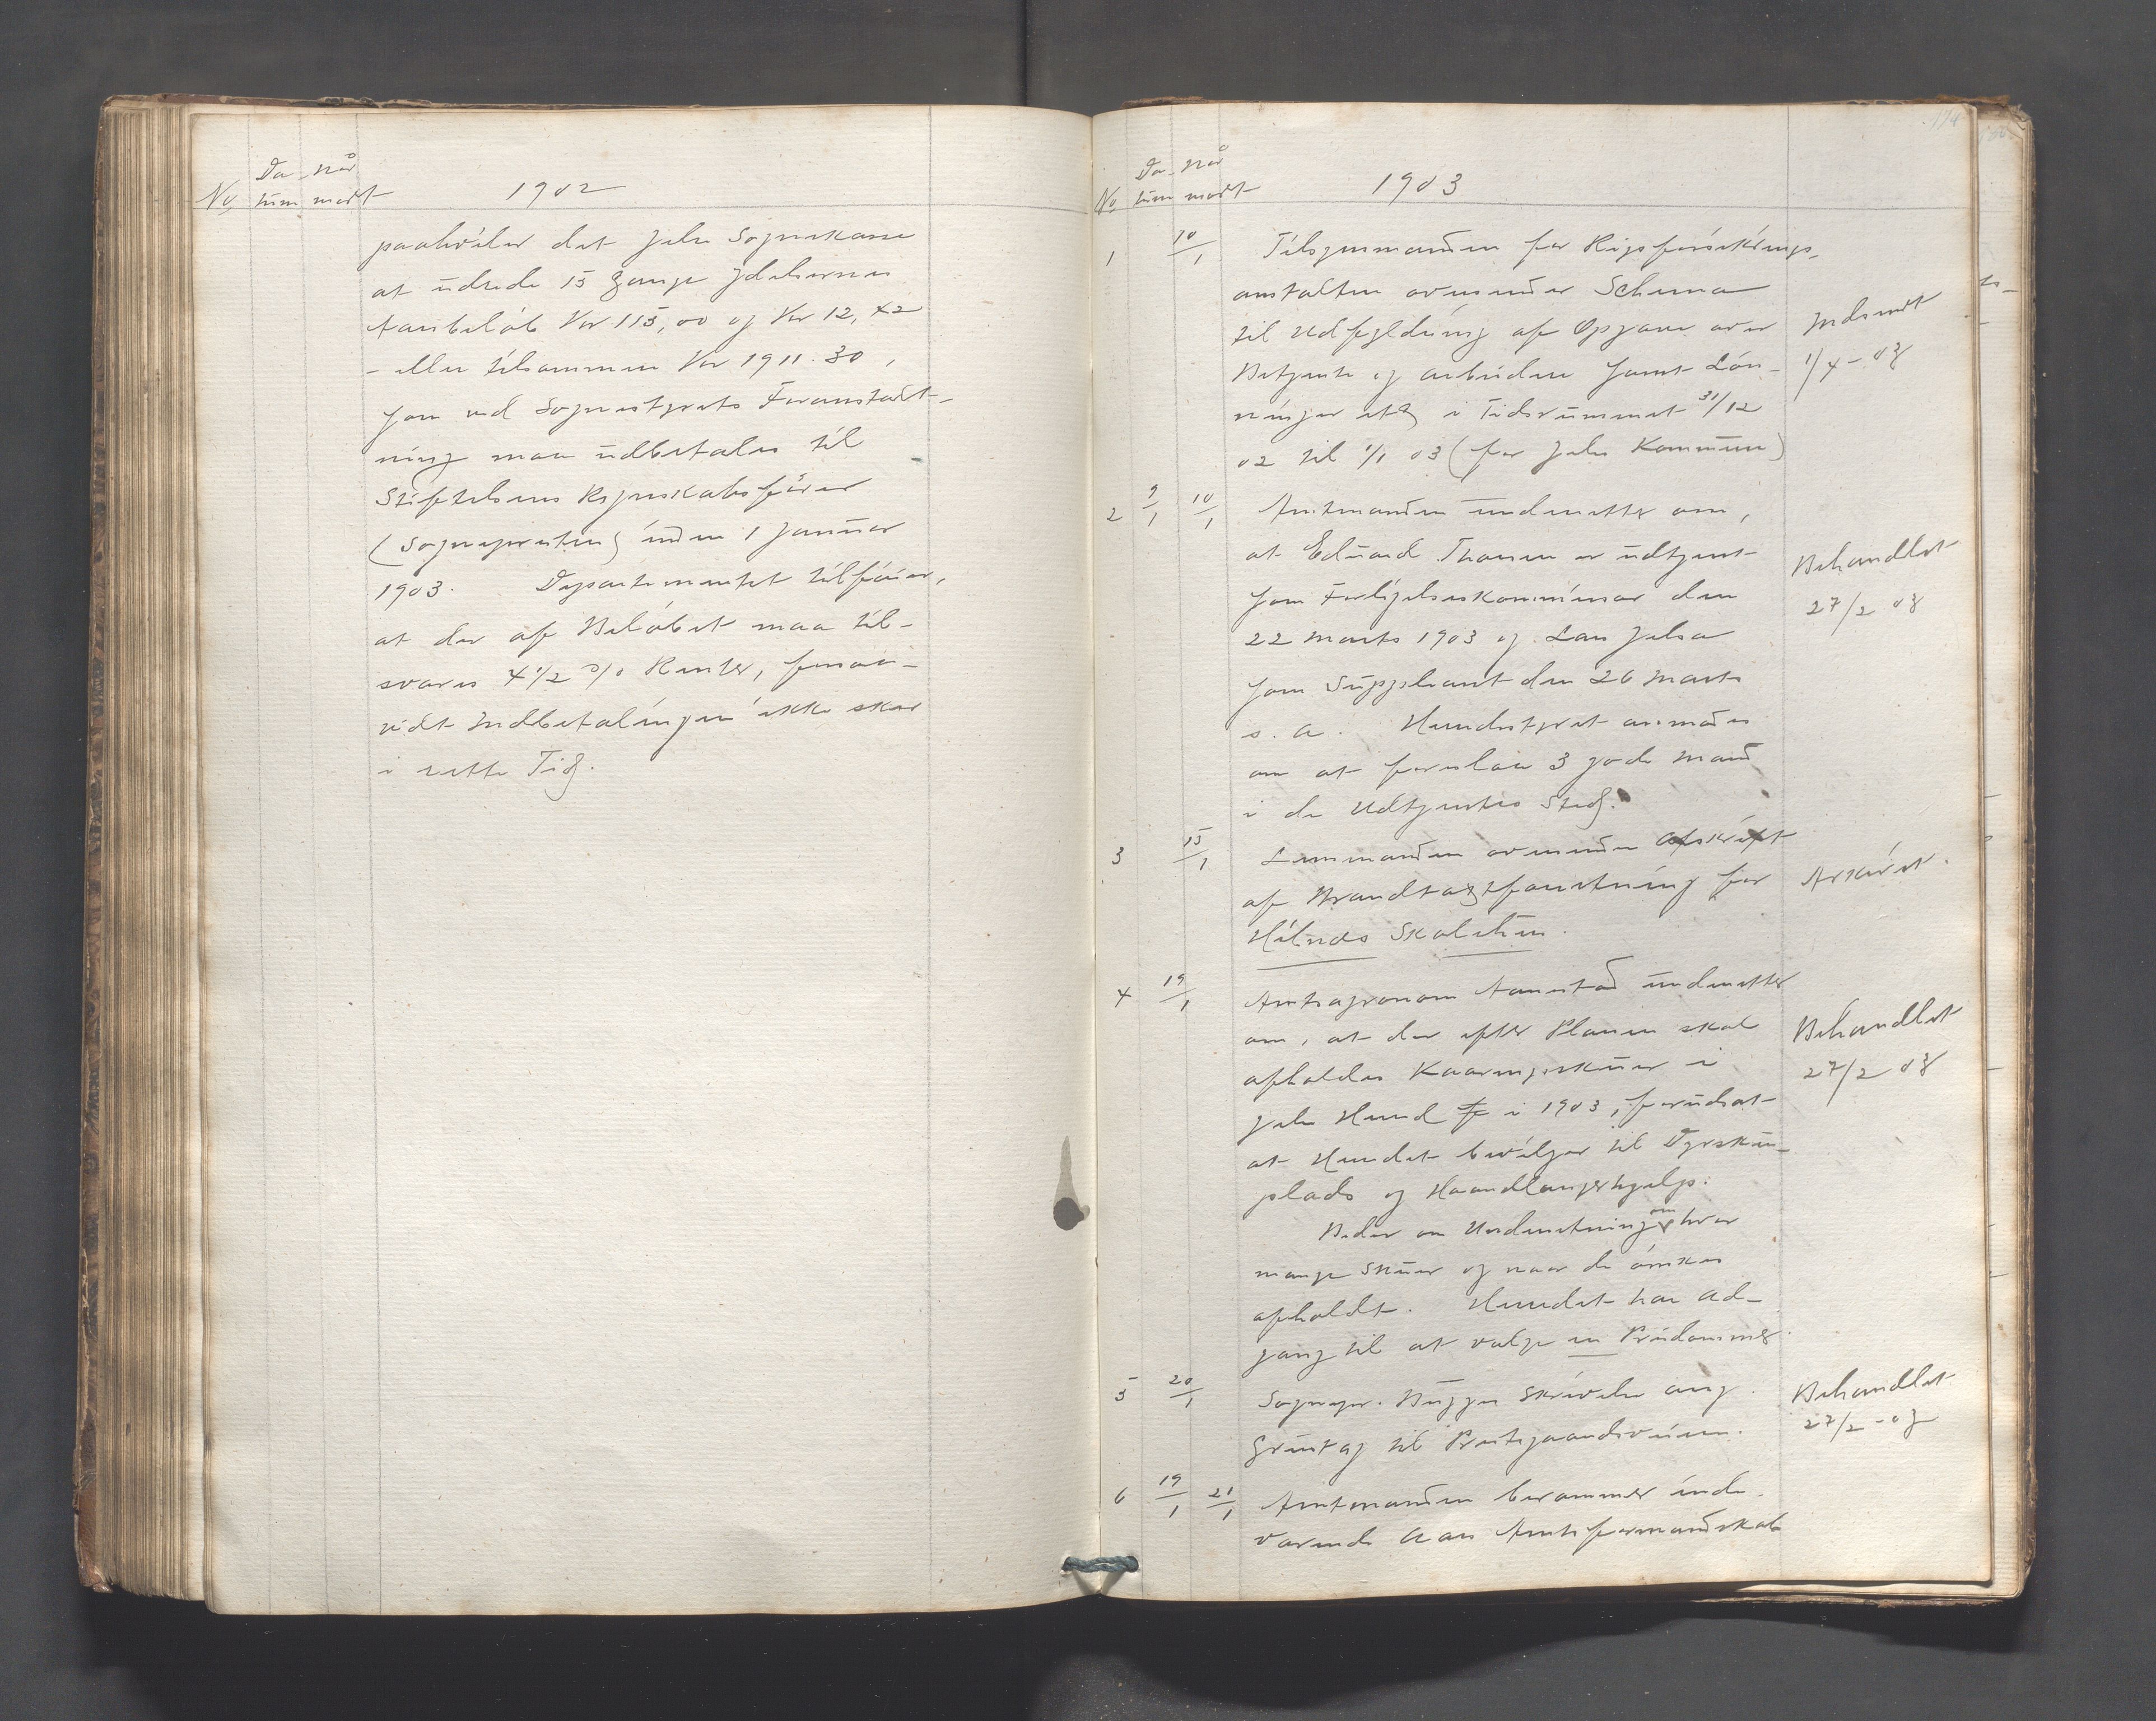 No Da- når
tum mødt 1902
paahviler det Jelse Sognekasse
at udrede 15 Gange Ydelsernes
Aarsbeløb Kr 115,00 og Kr 12,42
- eller tilsammen Kr 1911.30,
som ved Sognestyrets Foranstalt-
ning maa udbetales til
Stiftelsens Regnskabsfører
(Sognepresten) inden 1 Januar
1903. Departementet tilføier,
at der af Beløbet maa til-
svares 4 1/2 % Renter, forsaa-
vidt Indbetalingen ikke sker
i rette Tid.
114
No Da- når
tum mødt 1903
1 10/1 Tilsynsmanden for Rigsforsikrings-
anstalten oversender Schema
til Udfyldning af Opgave over
Betjente og arbeidere samt Løn-
ninger etc i Tidsrummet 31/12
02 til 1/1 03 (for Jelse Kommune)
Indsendt
1/4 - 03
2 9/1 10/1 Amtmanden underretter om,
at Eduard Thorsen er udtjent
som Forligelseskommissær den
22 Marts 1903 og Lars Jelsa
som Suppleant den 26 Marts
s. A. Herredstyret anmodes
om at foreslaa 3 gode Mænd
i de Udtjentes Sted.
Behandlet
27/2 03
3 15/1 Lensmanden oversender Afskrift
af Brandtaxtforretning for
Hålandes Skolehus.
Arkivet.
4 19/1 Amtsagronom Aanestad underretter
om, at der efter Planen skal
afholdes Kaaringsskuer i
Jelse Herred i 1903, forudsat
at Herredet bevilger til Dyrskue-
plads og Haandlangerhjelp.
Beder om Underretning om hvor
mange Skuer og naar de ønskes
afholdt. Herredet har Ad-
gang til at vælge en Prisdommer.
Behandlet
27/2 03
5 20/1 Sognepr. Bugges Skrivelse ang.
Grustag til Prestegaardsveien.
Behandlet
27/2 - 03
6 19/1 21/1 Amtmanden berammer inde-
værende Aars Amtsformandskab